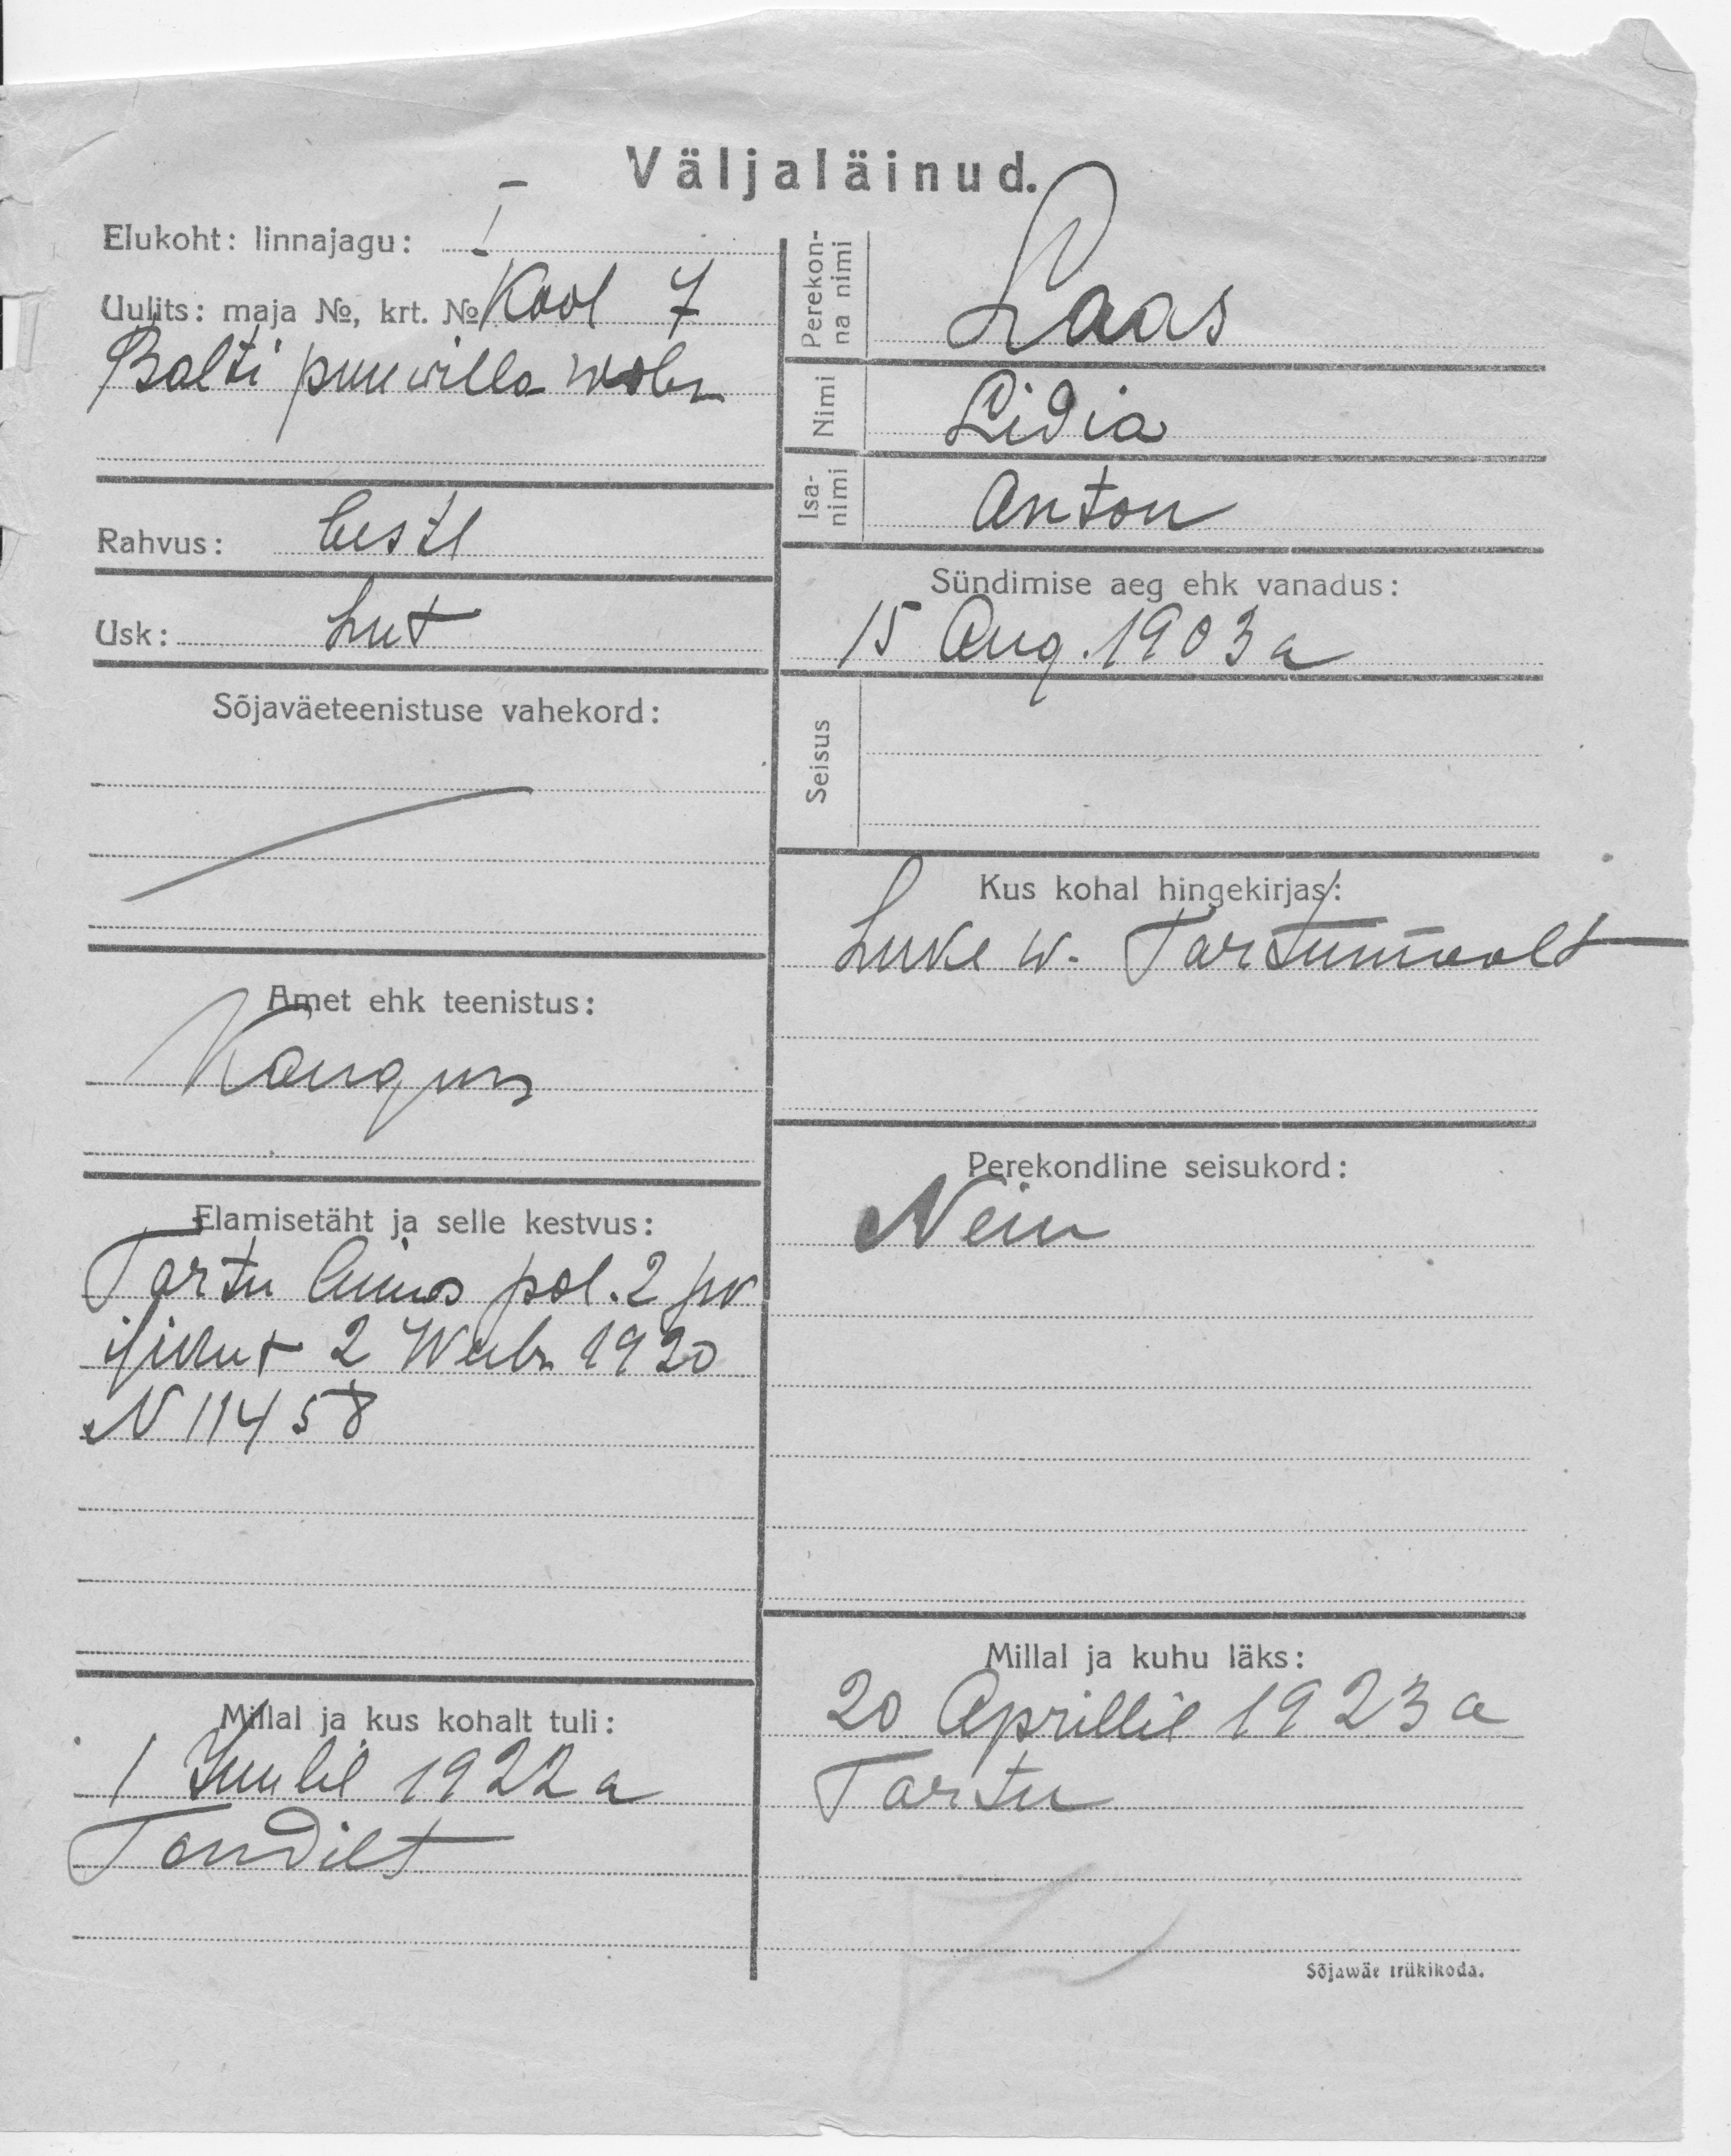 Väljaläinud.
Elukoht: linnajagu: I
Uulits: maja №, krt. № Kool 7
Balti puuwilla wabr
Rahvus: Eestl
Usk: Lut
Sõjaväeteenistuse vahekord:
Amet ehk teenistus:
Kangur
Elamisetäht ja selle kestvus:
Tartu linnas pol. 2 jsk
1920
N 11458
Millal ja kus kohalt tuli:
1 Juulil 1922 a
Perekonna nimi
Laas
Nimi
Lidia
Isanimi
Anton
Sündimise aeg ehk vanadus:
15 Aug. 1903 a
Seisus
Kus kohal hingekirjas:
Luke w. Tartumaalt
Perekondline seisukord:
Neiu
Millal ja kuhu läks:
20 Aprillil 1923 a
Tartu
Sõjawäe trükikoda.